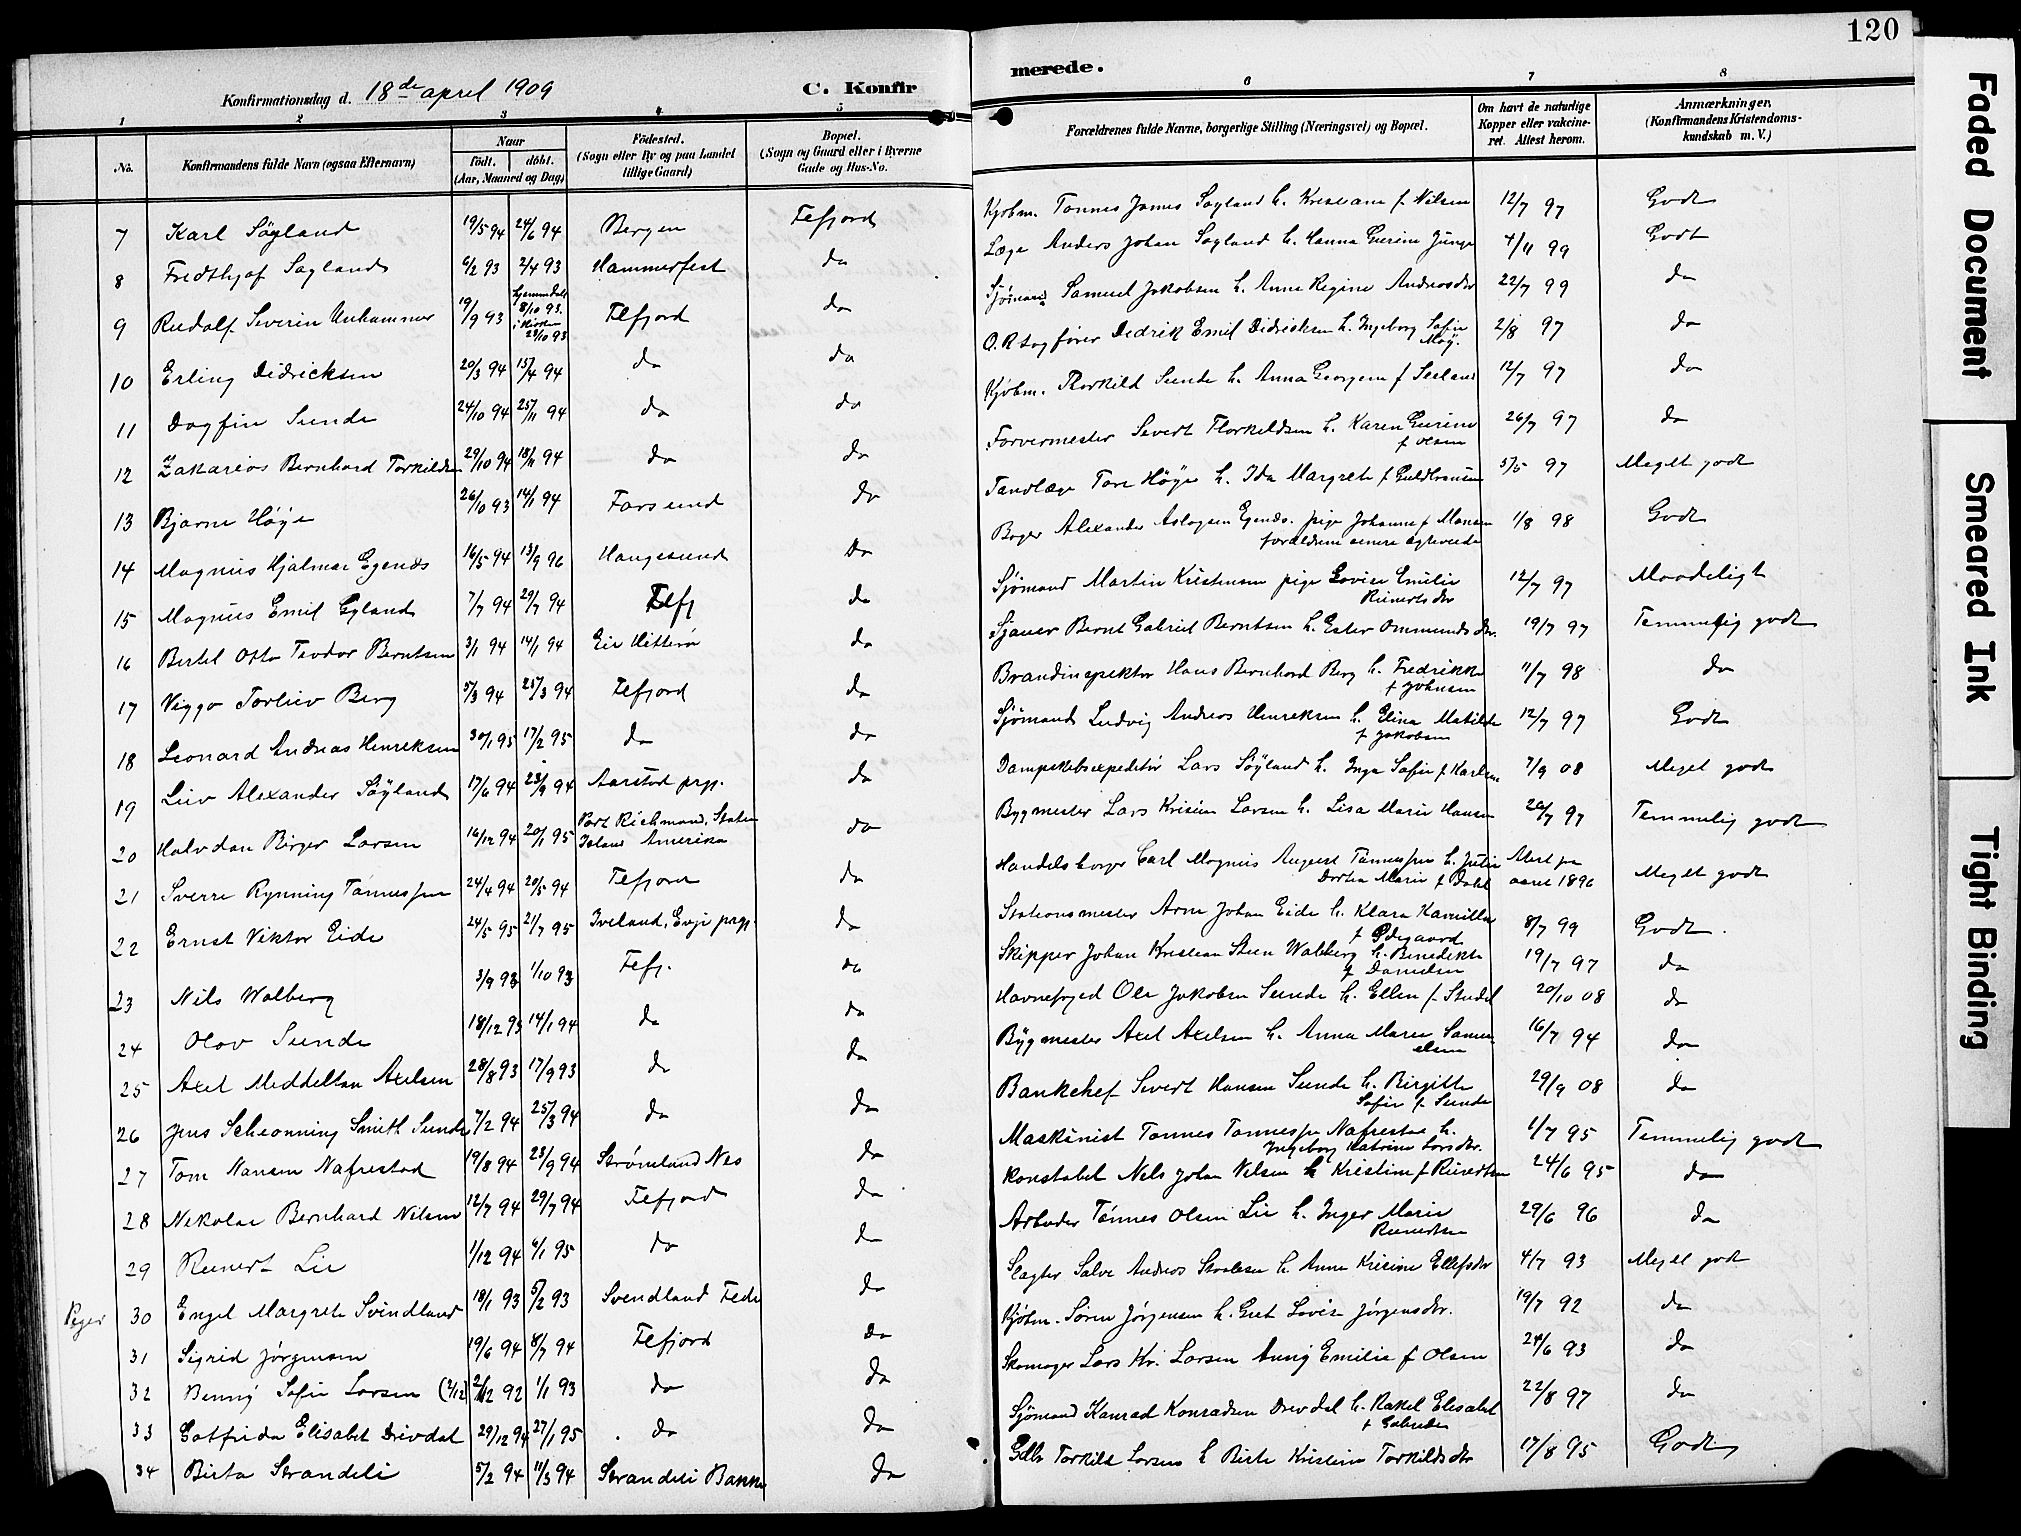 120
Konfirmationsdag d. 18de april 1909
C. Konfir
merede.
1 2 3 4 5 6 7 8
No.
Konfirmandens fulde Navn (ogsaa Efternavn)
Naar
födt. döbt.
(Aar, Maaned og Dag)
Födested.
(Sogn eller By og paa Landet
tillige Gaard)
Bopæl.
(Sogn og Gaard eller i Byerne
Gade og Hus-No.
Forældrenes fulde Navne, borgerlige Stilling (Næringsvei) og Bopæl.
Om havt de naturlige
Kopper eller vakcine-
ret. Attest herom.
Anmærkninger,
(Konfirmandens Kristendoms-
kundskab m. V.)
7 Karl Söyland 19/5 94 24/6 94 Bergen Fefjord Kjöbm. Tønnes Jonas Søyland h. Kristiane f Nilsen 12/7 97 Godt
8 Fredthjof Søyland 6/2 93 2/4 93 Hammerfest do Læge Anders Johan Søyland h. Hanna Gurine Junge 4/11 99 Godt
9 Rudolf Severin Unhammer 19/9 93 hjemmedøbt 8/10 93. i kirken 29/10 93 Flefjord do Sjömand Samuel Jakobsen h. Anne Regine Andreasdtr 22/7 99 do
10 Erling Didricksen 20/3 94 15/4 94 do do O.R.sagfører Didrik Emil Didricksen h. Ingeborg Sofie Moy. 2/8 97 do
11 Dagfin Sunde 24/10 94 25/11 94 do do Kjöbm. Thorkild Sunde h. Anna Georgine f Seland 12/7 97 do
12 Zakarias Bernhard Torkildsen 29/10 94 18/11 94 do do Farvermester Severt Thorkildsen h. Karen Gurine f Olsen 26/7 97 do
13 Bjarne Höye 26/10 93 14/1 94 Farsund do Tandlæge Tore Höye h. Ida Margrete f Guldbransen 5/5 97 Meget godt
14 Magnus Hjalmar Egenæs 16/5 94 13/9 96 Haugesund Do Bager Alexander Aslagsen Egenæs. pige Johanne f Monsen forældrene senere ægteviede 1/8 98 Godt
15 Magnus Emil Gyland 7/7 94 29/7 94 Flefj do Sjømand Martin Kristensen pige Lovise Emilie Reinertsdtr 12/7 97 Maadeligt
16 Bertel Otto Teodor Berntsen 3/1 94 14/1 94 Eie Hitterø do Sjauer Bernt Gabriel Berntsen h. Ester Ommundsdtr. 19/7 97 Temmelig godt
17 Viggo Torleiv Berg 5/3 94 25/3 94 Flefjord do Brandinspektør Hans Bernhard Berg h. Fredrikke f Johnsen 11/7 98 do
18 Leonard Andreas Henriksen 30/1 95 17/2 95 do do Sjömand Ludvig Andreas Henriksen h. Elina Matilde f Jakobsen 12/7 97 Godt
19 Leiv Alexander Söyland 17/6 94 23/9 94 Aarstad prgj. do Dampskibsexpeditör Lars Söyland h. Inga Sofie f Karlsen 7/9 08 Meget godt
20 Halvdan Birger Larsen 16/12 94 20/1 95 Port Richmond, Staten Island Amerika do Bygmester Lars Kristian Larsen h. Lisa Marie Hansen 20/7 97 Temmelig godt
21 Sverre Rynning Tönnessen 24/4 94 20/5 94 Flefjord do Handelsborger Carl Magnus August Tönnessen h. Julie Dortea Marie f Dahl Attest fra aaret 1896 Meget godt
22 Ernst Viktor Eide 24/5 95 21/7 95 Iveland, Evje prgj. do Stationsmester Arne Johan Eide h. Klara Kamilla f Ödegaard 8/7 99 Godt.
23 Nils Walberg 3/9 93 1/10 93 Flefj. do Skipper Johan Kristian Steen Walberg h. Benedikte f Danielsen 19/7 97 do
24 Olav Sunde 18/12 93 14/1 94 do do Havnefoged Ole Jakobsen Sunde h. Ellen f Stusel 20/10 08 do
25 Axel Middelton Axelsen 28/8 93 17/9 93 do do Bygmester Axel Axelsen h. Anna Marie Samuelsen 16/7 94 do
26 Jens Scheonning Smith Sunde 7/2 94 25/3 94 do do Bankchef Severt Hansen Sunde h. Birgitte Sofie f Sunde 29/9 08 do
27 Tom Hansen Nafrestad 19/8 94 23/9 94 Strømland Nes do Maskinist Tønnes Tønnessen Nafrestad h. Ingeborg Katrine Larsdtr. 1/7 95 Temmelig godt
28 Nikolai Bernhard Nilsen 12/7 94 29/7 94 Flefjord do Konstabel Nils Johan Nilsen h Kristine f Reinertsen 24/6 95 do
29 Reinert Lie 1/12 94 6/1 95 do do Arbeider Tönnes Olsen Lie h. Inger Marie Reinertsen 29/6 96 do
Piger 30 Engel Margrete Svindland 18/1 93 5/2 93 Svendland Feda do Slagter Salve Andreas Staalesen h. Anne Kirsine Ellefsdtr 4/7 93 Meget godt
31 Sigrid Jörgensen 19/6 94 8/7 94 Flefjord do Kjöbm. Sören Jörgensen h. Gurt Lovise Jörgensdtr. 19/7 92 do
32 Benny Sofie Larsen (2/12) 2/12 92 1/1 93 do do Skomager Lars Kr. Larsen Anny Emilie f Olsen 24/6 93 do
33 Gotfrida Elisabet Drivdal 29/12 94 27/1 95 do do Sjömand Konrad Konradsen Drivdal h. Rakel Elisabet f Gabrielsen 22/8 97 do
34 Birta Strandeli 5/2 94 11/3 94 Strandeli Bakke do Gdbr Torkild Larsen h Birte Kristine Torkildsdtr 17/8 95 Godt
Faded Document
Smeared Ink
Tight Binding